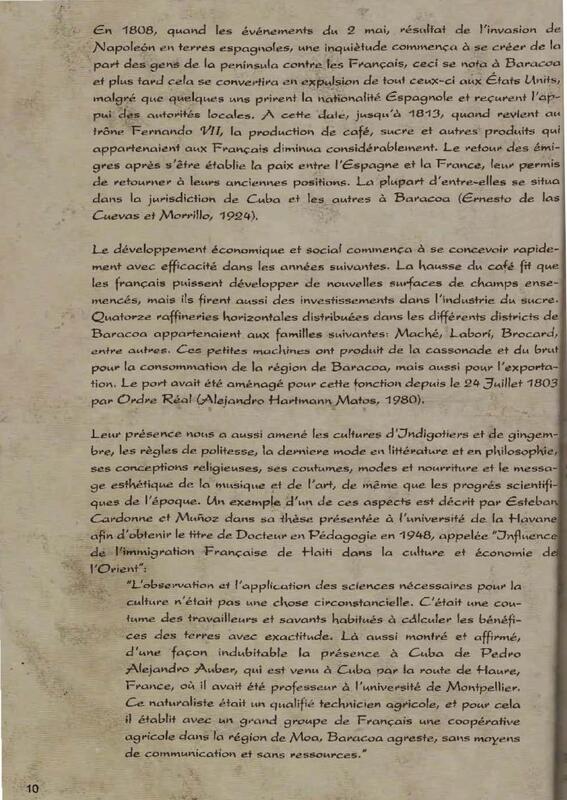 En 1808, quand les événements du 2 mai, résultat de l'invasion de
Napoleón en terres espagnoles, une inquiètude commença à se créer de la
part des gens de la peninsula contre les Français, ceci se nota à Baracoa
et plus tard cela se convertira en expulsion de tout ceux-ci aux États Units,
malgré que quelques uns prirent la nationalité Espagnole et reçurent l'ap-
pui des autorités locales. A cette date, jusqu'à 1813, quand revient au
trône Fernando VII, la production de café, sucre et autres produits qui
appartenaient aux Français diminua considérablement. Le retour des émi-
gres après s'être établie la paix entre l'Espagne et la France, leur permis
de retourner à leurs anciennes positions. La plupart d'entre-elles se situa
dans la jurisdiction de Cuba et les autres à Baracoa (Ernesto de las
Cuevas et Morrillo, 1924).
Le développement économique et social commença à se concevoir rapide-
ment avec efficacité dans les années suivantes. La hausse du café fit que
les français puissent développer de nouvelles surfaces de champs ense-
mencés, mais ils firent aussi des investissements dans l'industrie du sucre.
Quatorze raffineries horizontales distribuées dans les différents districts de
Baracoa appartenaient aux familles suivantes: Maché, Laborí, Brocard,
entre autres. Ces petites machines ont produit de la cassonade et du brut
pour la consommation de la région de Baracoa, mais aussi pour l'exporta-
tion. Le port avait été aménagé pour cette fonction depuis le 24 Juillet 1803
par Ordre Réal (Alejandro Hartmann Matos, 1980).
Leur présence nous a aussi amené les cultures d'Indigotiers et de gingem-
bre, les règles de politesse, la derniere mode en littérature et en philosophie,
ses conceptions religieuses, ses coutumes, modes et nourriture et le messa-
ge esthétique de la musique et de l'art, de même que les progrés scientifi-
ques de l'époque. Un exemple d'un de ces aspects est décrit par Esteban
Cardonne et Muñoz dans sa thèse présentée à l'université de la Havane
afin d'obtenir le titre de Docteur en Pédagogie en 1948, appelée "Influence
de l'immigration Française de Haiti dans la culture et économie de
l'Orient":
"L'observation et l'application des sciences nécessaires pour la
culture n'était pas une chose circonstancielle. C'était une cou-
tume des travailleurs et savants habitués à câlculer les bénéfi-
ces des terres avec exactitude. Là aussi montré et affirmé,
d'une façon indubitable la présence à Cuba de Pedro
Alejandro Auber, qui est venu à Cuba par la route de Haure,
France, où il avait été professeur à l'université de Montpellier.
Ce naturaliste était un qualifié technicien agricole, et pour cela
il établit avec un grand groupe de Français une coopérative
agricole dans la région de Moa, Baracoa agreste, sans moyens
de communication et sans ressources."
10